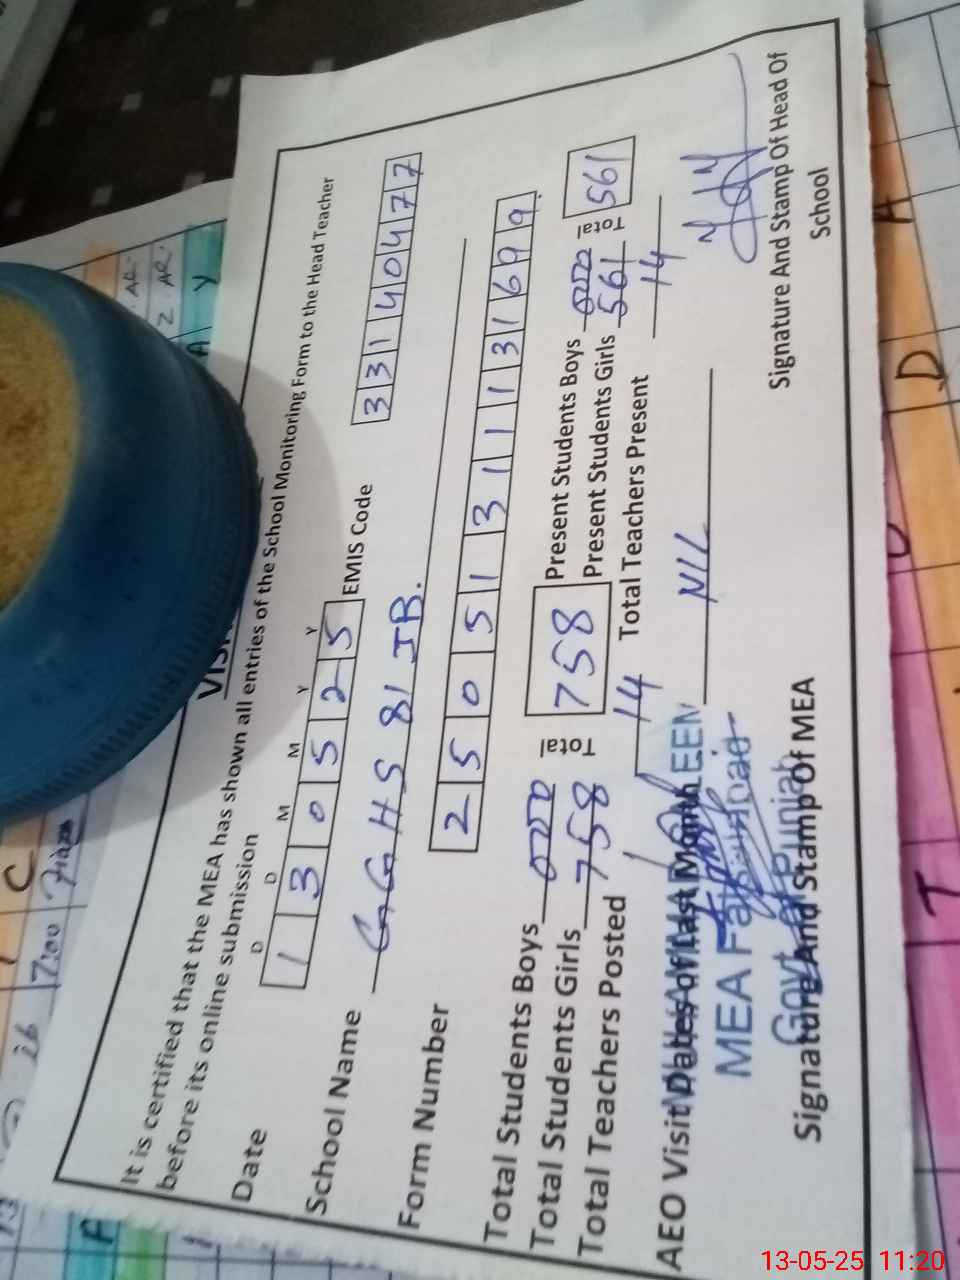 It is certified that the MEA has shown all entries of the School Monitoring Form to the Head Teacher
before its online submission
D D M M Y Y
Date 1 3 0 5 2 5 EMIS Code 3 3 1 4 0 4 7 7
School Name GGHS 81 JB.
Form Number 2 5 0 5 1 3 1 1 1 3 1 6 9 9
Total Students Boys Total 758 Present Students Boys Total 561
Total Students Girls 758 Present Students Girls 561
Total Teachers Posted 14 Total Teachers Present 14
AEO Visit Dates of Last Month NIL
MEA Faisalabad
Govt. of Punjab
Signature And Stamp Of MEA
Signature And Stamp Of Head Of
School
7:00
C
A
T
D
A
13-05-25 11:20